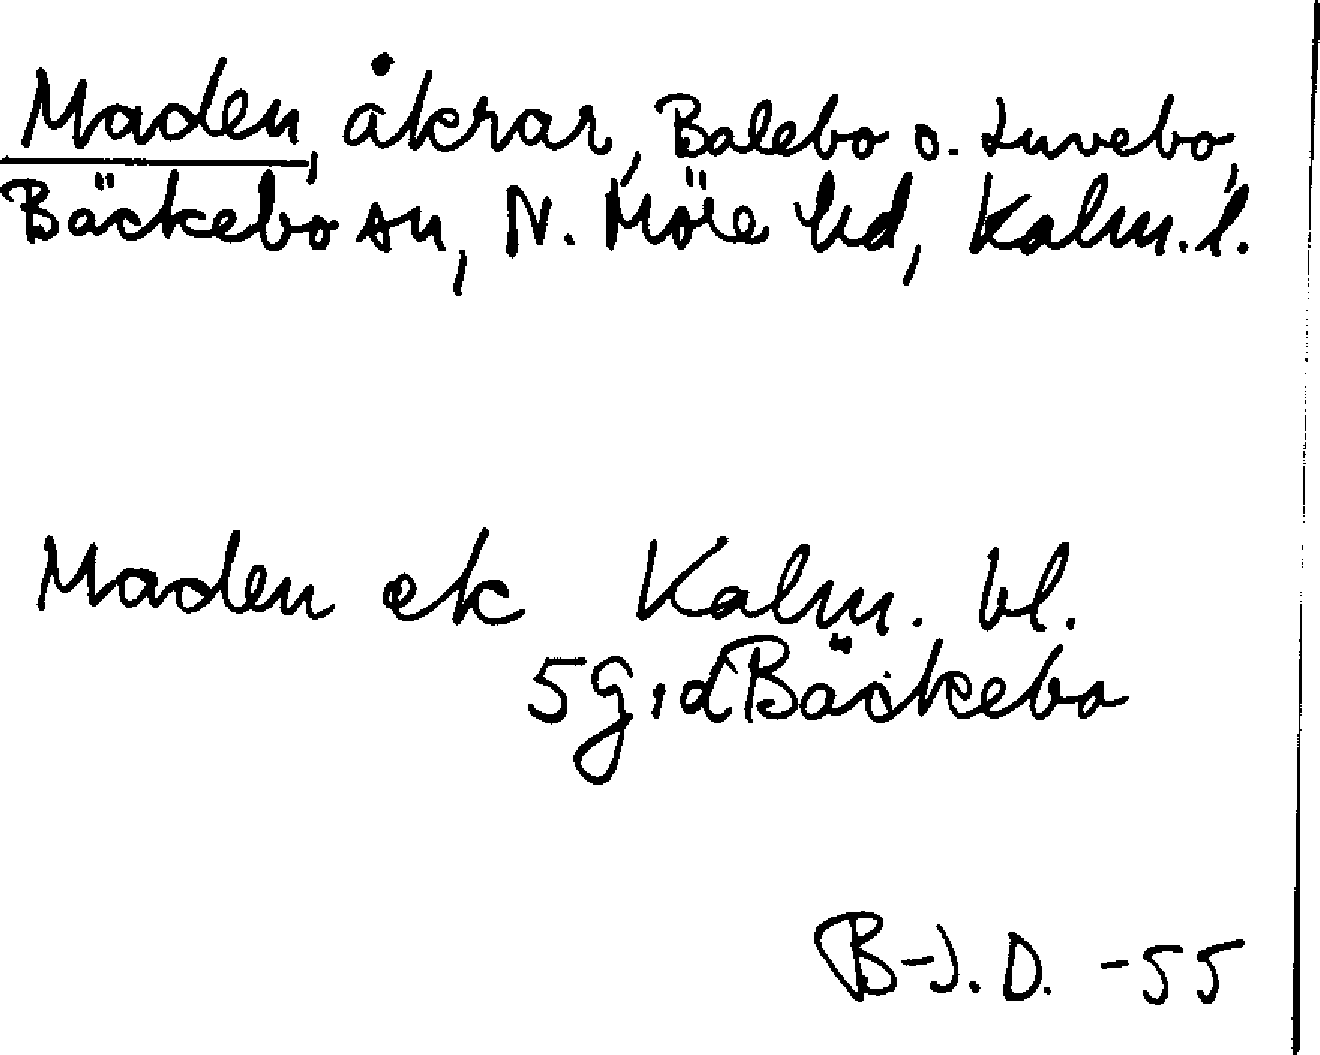 Maden, åkrar, Balebo o. Luvebo,
Bäckebo sn, N. Möre hd, Kalm. l.
Maden ek Kalm. bl.
5 g, d Bäckebo
B-J. D. -55